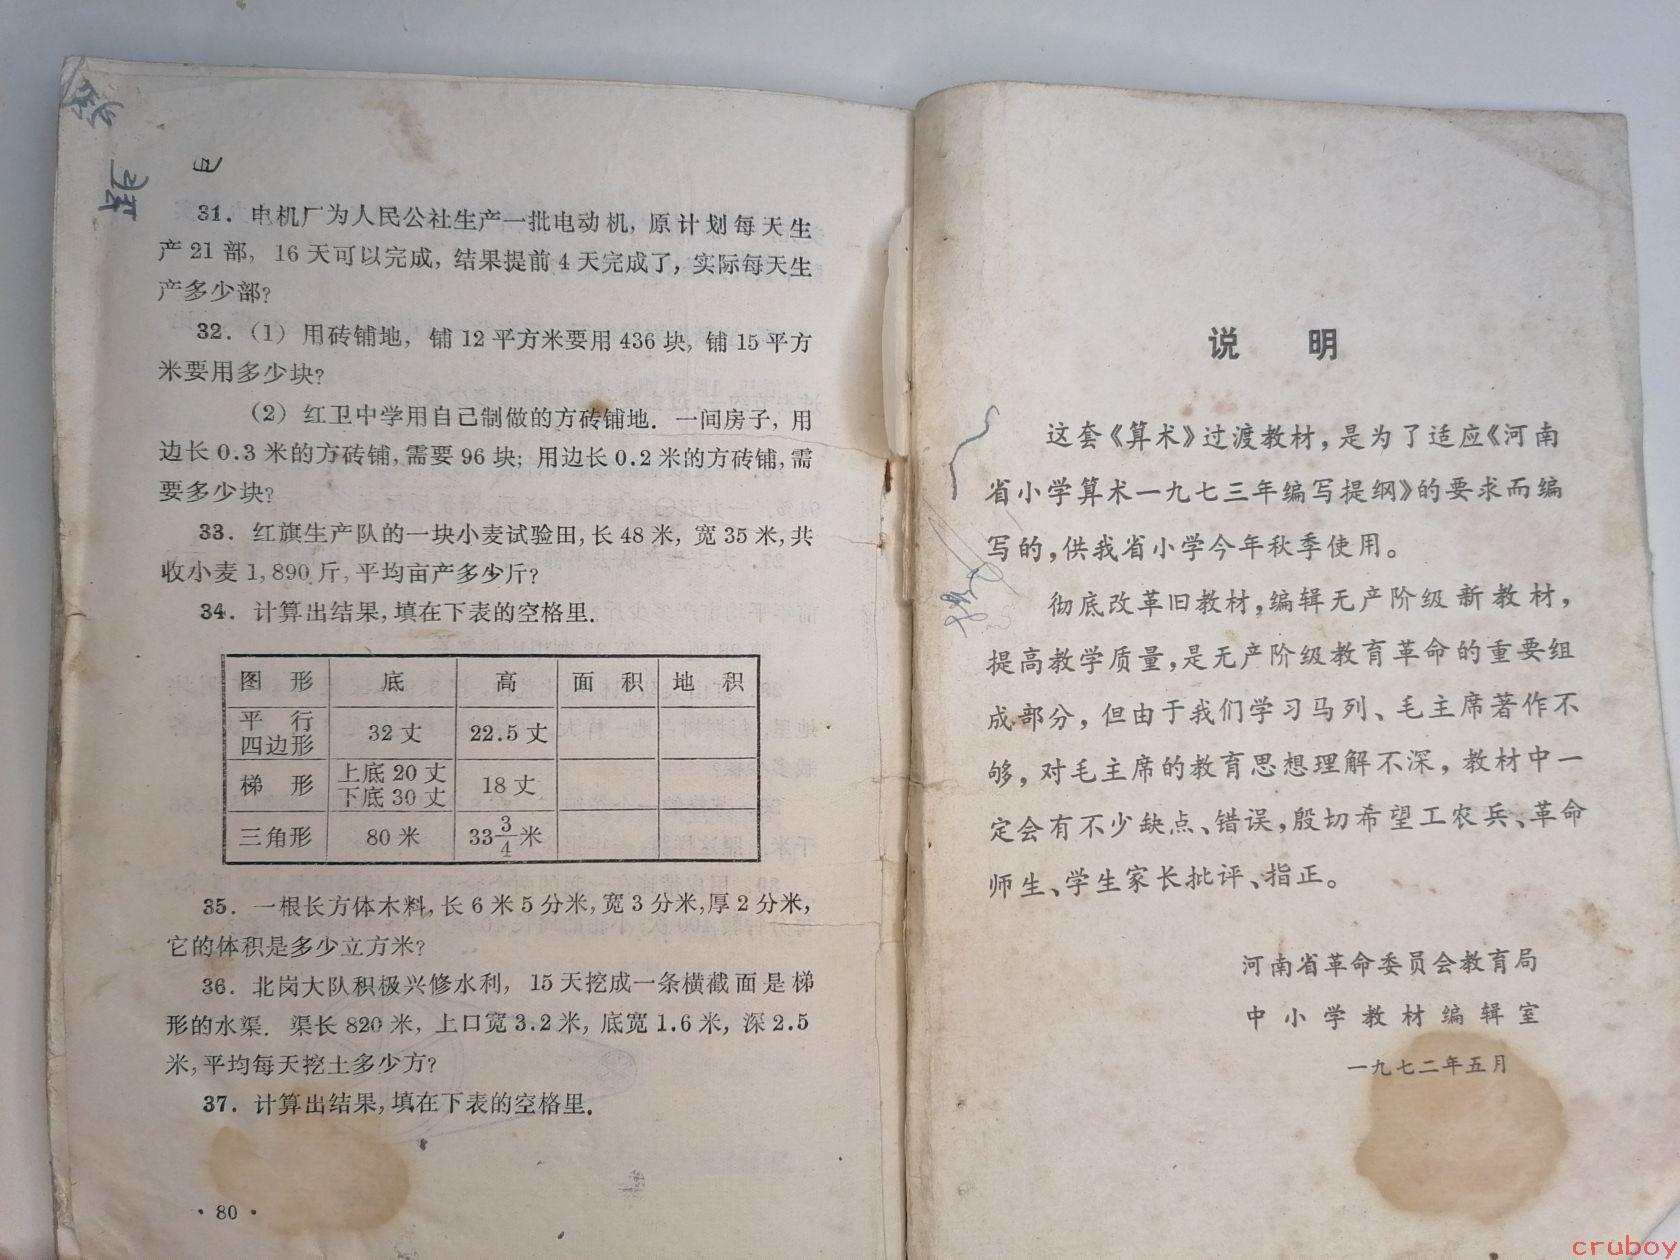 31. 电机厂为人民公社生产一批电动机, 原计划每天生
产21部, 16天可以完成, 结果提前4天完成了, 实际每天生
产多少部?
32. (1) 用砖铺地, 铺12平方米要用436块, 铺15平方
米要用多少块?
(2) 红卫中学用自己制做的方砖铺地. 一间房子, 用
边长0.3米的方砖铺, 需要96块; 用边长0.2米的方砖铺, 需
要多少块?
33. 红旗生产队的一块小麦试验田, 长48米, 宽35米, 共
收小麦1,890斤, 平均亩产多少斤?
34. 计算出结果, 填在下表的空格里.
图 形 底 高 面 积 地 积
平 行
四边形 32丈 22.5丈
梯 形 上底20丈 18丈
下底30丈
三角形 80米 33 3/4米
35. 一根长方体木料, 长6米5分米, 宽3分米, 厚2分米,
它的体积是多少立方米?
36. 北岗大队积极兴修水利, 15天挖成一条横截面是梯
形的水渠. 渠长820米, 上口宽3.2米, 底宽1.6米, 深2.5
米, 平均每天挖土多少方?
37. 计算出结果, 填在下表的空格里.
· 80 ·
说 明
这套《算术》过渡教材,是为了适应《河南
省小学算术一九七三年编写提纲》的要求而编
写的,供我省小学今年秋季使用。
彻底改革旧教材,编辑无产阶级新教材,
提高教学质量,是无产阶级教育革命的重要组
成部分,但由于我们学习马列、毛主席著作不
够,对毛主席的教育思想理解不深,教材中一
定会有不少缺点、错误,殷切希望工农兵、革命
师生、学生家长批评、指正。
河南省革命委员会教育局
中小学教材编辑室
一九七二年五月
cruboy